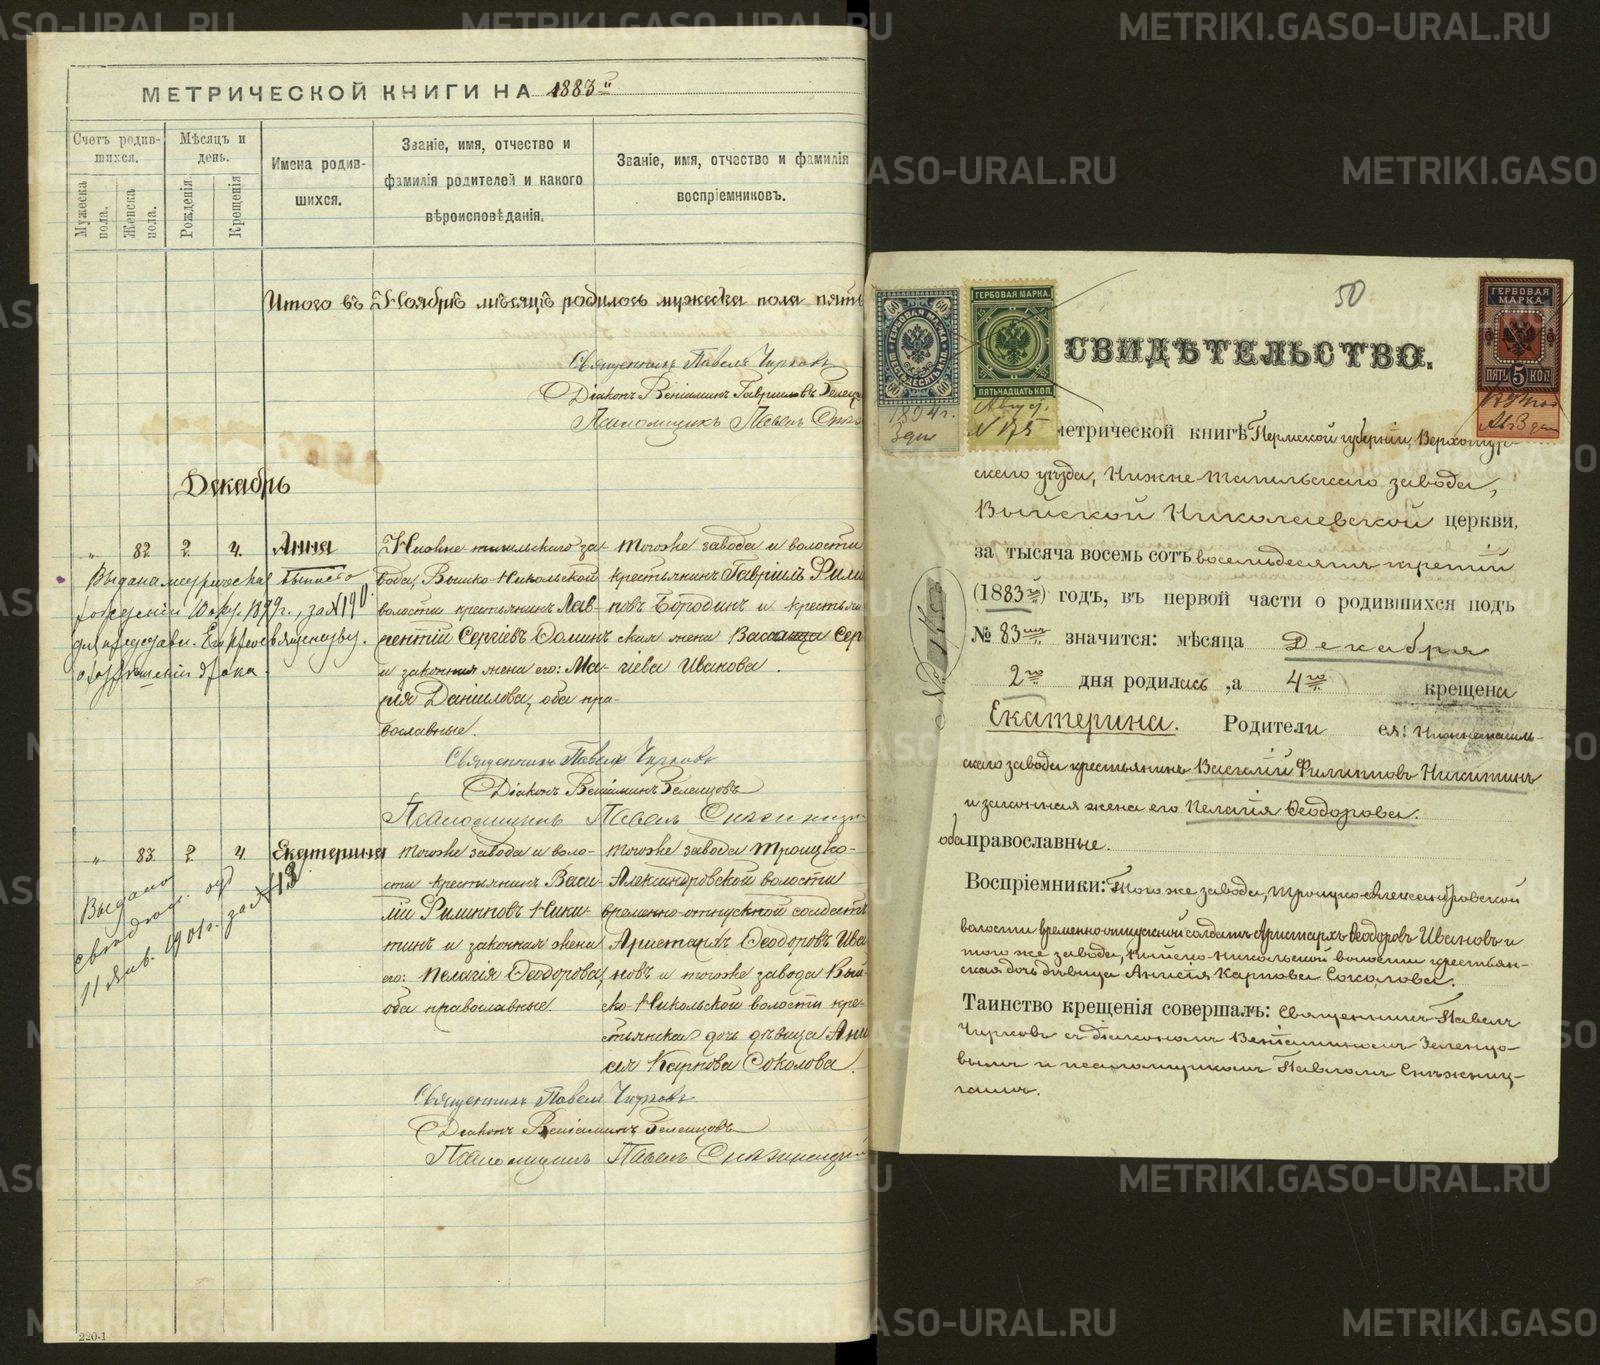 МЕТРИЧЕСКОЙ КНИГИ НА 1883й
Счетъ родив-
шихся.
Мѣсяцъ и
день.
Имена родив-
шихся.
Званіе, имя, отчество и
фамилія родителей и какого
вѣроисповѣданія.
Званіе, имя, отчество и фамилія
воспріемниковъ.
Мужеска
пола.
Женска
пола.
Рожденія.
Крещенія
Итого въ Ноябрѣ мѣсяцѣ родилось мужеска пола пять
Священникъ Павелъ Чирковъ
Діаконъ Веніаминъ Гавриловъ Зеленц
Псаломщикъ Павелъ
Декабрь
„ 82. 2. 4. Анна
Нижне тагильскаго за-
вода, Выйско-Никольской
волости крестьянинъ Лав-
рентій Сергіевъ Доминъ
и законная жена его: Ма-
рія Данилова, оба пра-
вославные.
тогоже завода и волости
крестьянинъ Гавріилъ Фили
повъ Бородинъ и крестьян
ская жена Васса Сер
гіева Иванова.
Выдана метрическая выпись
1899г., за №190.
Священникъ Павелъ Чирковъ
Діаконъ Веніаминъ Зеленцовъ
Псаломщикъ Павелъ
„ 83. 2. 4. Екатерина
тогоже завода и воло-
сти крестьянинъ Васи-
лій Филипповъ Ники-
тинъ и законная жена
его: Пелагія Ѳеодорова,
оба православные.
тогоже завода Троицко-
Александровской волости
временно-отпускной солдатъ
Аристархъ Ѳеодоровъ Ива
новъ и тогоже завода Вый-
ско-Никольской волости кре-
стьянская дочь дѣвица Ани
сія Карпова Соколова.
Выдано
свидѣт. отъ
11 Янв. 1901г. за №13
Священникъ Павелъ Чирковъ
Діаконъ Веніаминъ Зеленцовъ
Псаломщикъ Павелъ
220-1
50
ГЕРБОВАЯ МАРКА
60
ШЕСТЬДЕСЯТЪ КОП.
1894г.
ГЕРБОВАЯ МАРКА.
ПЯТЬНАДЦАТЬ КОП.
Август.
№ 175
ГЕРБОВАЯ
МАРКА
ПЯТЬ 5 КОП
СВИДѢТЕЛЬСТВО.
метрической книгѣ Пермской губерніи, Верхотур-
скаго уѣзда, Нижне Тагильскаго завода,
Выйской Николаевской церкви,
за тысяча восемь сотъ восемьдесятъ третій
(1883й) годъ, въ первой части о родившихся подъ
№ 83мъ значится: мѣсяца Декабря
2го дня родилась, а 4го крещена
Екатерина. Родители ея: Нижнетагиль-
скаго завода крестьянинъ Василій Филипповъ Никитинъ
и законная жена его Пелагія Ѳеодорова.
оба православные.
Воспріемники: Того же завода, Троицко-Александровской
волости временно отпускной солдатъ Аристархъ Ѳеодоровъ Ивановъ и
того же завода, Выйско-Никольской волости крестьян-
ская дочь дѣвица Анисія Карпова Соколова.
Таинство крещенія совершалъ: Священникъ Павелъ
Чирковъ съ діакономъ Веніаминомъ Зеленцо-
вымъ и псаломщикомъ Павломъ
METRIKI.GASO-URAL.RU